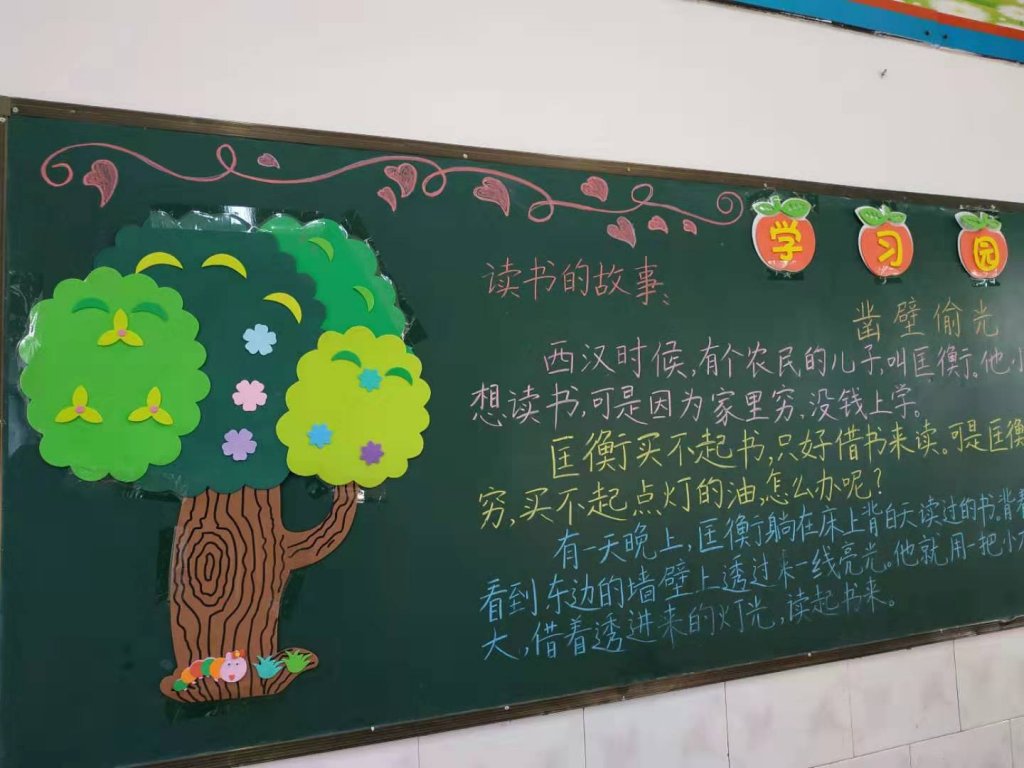 学习园
读书的故事:
凿壁偷光
西汉时候,有个农民的儿子,叫匡衡。他小
想读书,可是因为家里穷,没钱上学。
匡衡买不起书,只好借书来读。可是匡衡
穷,买不起点灯的油,怎么办呢?
有一天晚上,匡衡躺在床上背白天读过的书。背着
看到东边的墙壁上透过来一线亮光。他就用一把小
大,借着透进来的灯光,读起书来。